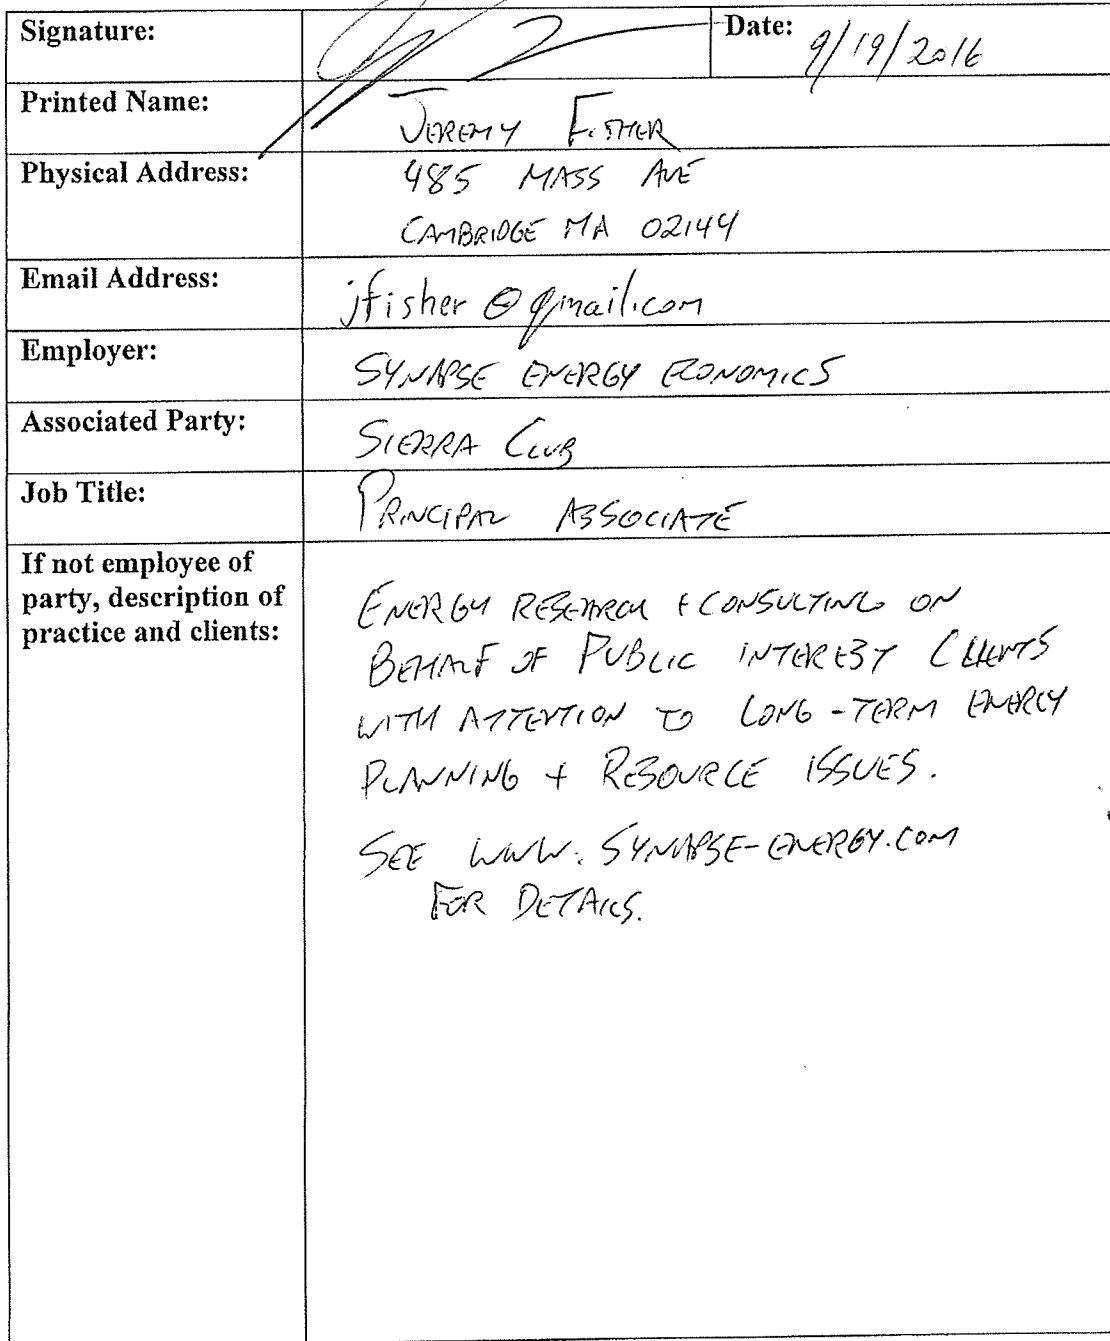 Signature:
Date: 9/19/2016
Printed Name: JEREMY FISHER
Physical Address: 485 MASS AVE
CAMBRIDGE MA 02144
Email Address: jfisher@gmail.com
Employer: SYNAPSE ENERGY ECONOMICS
Associated Party: SIERRA CLUB
Job Title: PRINCIPAL ASSOCIATE
If not employee of
party, description of
practice and clients:
ENERGY RESEARCH + CONSULTING ON
BEHALF OF PUBLIC INTEREST CLIENTS
WITH ATTENTION TO LONG-TERM ENERGY
PLANNING + RESOURCE ISSUES.
SEE WWW.SYNAPSE-ENERGY.COM
FOR DETAILS.